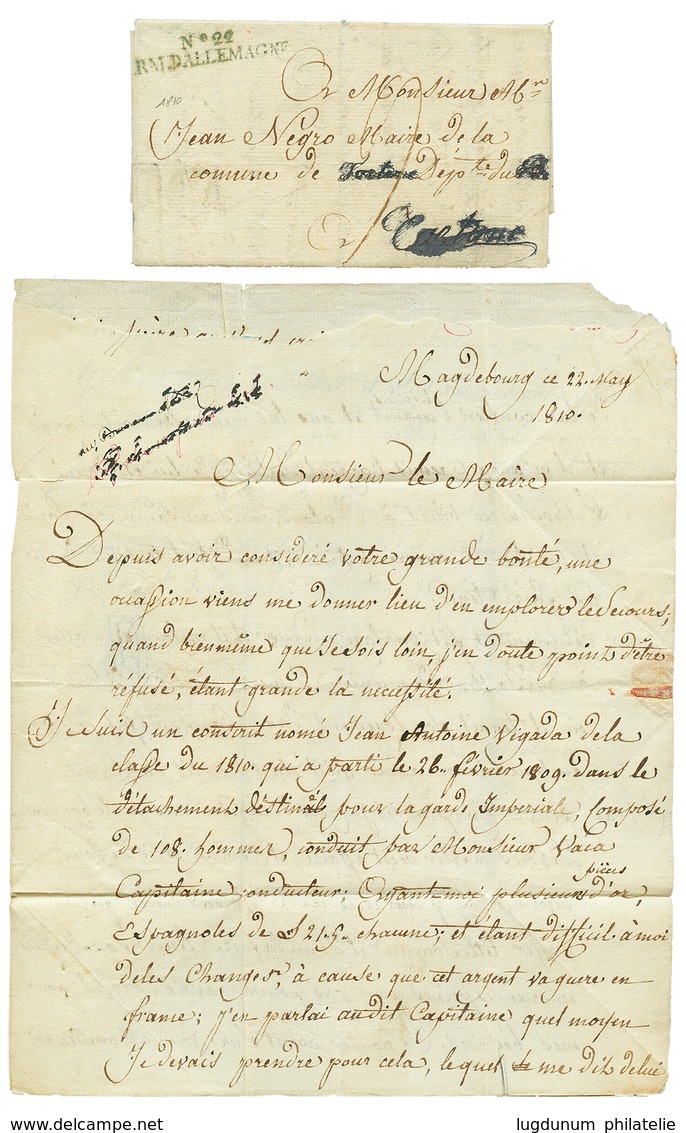 N° 22
ARM. D'ALLEMAGNE
1810
A Monsieur Mr.
Jean Negro Maire de la
comune de Dépte. du
A
Magdebourg ce 22. May
1810.
Monsieur le Maire
Depuis avoir consideré votre grande bonté, une
occassion viens me donner lieu d'en emplorer le Secours;
quand bienmême que Je sois loin, j'en doute point d'être
réfusé, étant grande la necessité.
Je suis un conscrit nomé Jean Antoine Vigada de la
classe du 1810. qui a parti le 26. février 1809. dans le
détachement déstiné pour la garde Imperiale, composé
de 108. hommes, conduit par Monsieur Vaca
pièces
Capitaine conducteur; Ayant moi plusieurs d'or,
Espagnoles de 21.5. chacune; et étant difficil à moi
deles Changer, à cause que cet argent va guere en
france; j'en parlai audit Capitaine quel moyen
Je devais prendre pour cela, le quel me dit delui
delcampe.net
lugdunum philatelie